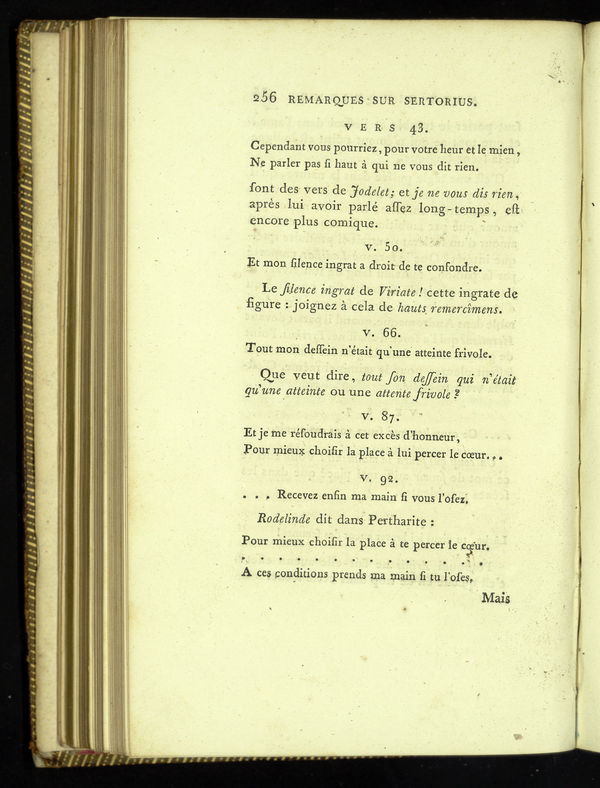 256 REMARQUES SUR SERTORIUS.
VERS 43.
Cependant vous pourriez, pour votre heur et le mien,
Ne parler pas ſi haut à qui ne vous dit rien.
ſont des vers de Jodelet; et je ne vous dis rien,
après lui avoir parlé aſſez long-temps, eſt
encore plus comique.
v. 50.
Et mon ſilence ingrat a droit de te confondre.
Le ſilence ingrat de Viriate ! cette ingrate de
figure : joignez à cela de hauts remercîmens.
v. 66.
Tout mon deſſein n'était qu'une atteinte frivole.
Que veut dire, tout ſon deſſein qui n'était
qu'une atteinte ou une attente frivole ?
v. 87.
Et je me réſoudrais à cet excès d'honneur,
Pour mieux choiſir la place à lui percer le cœur...
v. 92.
. . . Recevez enfin ma main ſi vous l'oſez.
Rodelinde dit dans Pertharite :
Pour mieux choiſir la place à te percer le cœur.
. . . . . . . . . . . . . .
A ces conditions prends ma main ſi tu l'oſes.
Mais